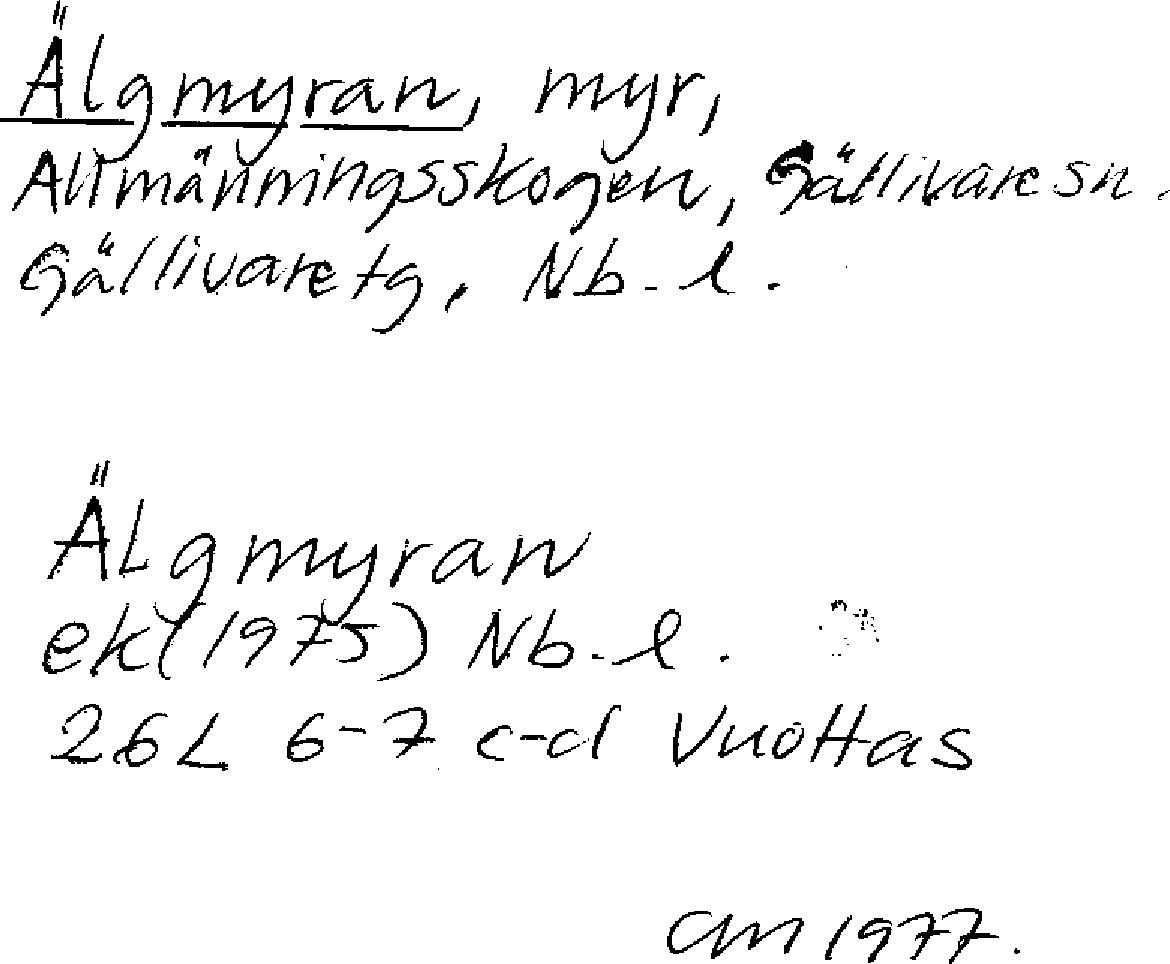 Älgmyran, myr,
Allmänningsskogen, Gällivare sn.
Gällivare tg, Nb. l.
Älgmyran
ek (1975) Nb. l.
26L 6-7 c-d Vuottas
CM 1977.